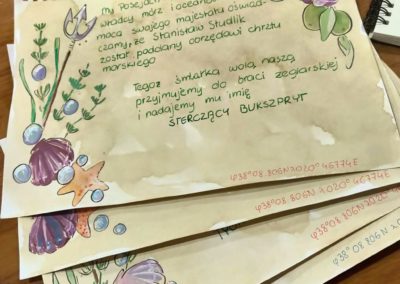 My Posejdon
władcy mórz i oceanów
mocą swojego majestatu oświad-
czamy, że Stanisław Studlik
został poddany obrzędowi chrztu
morskiego
Tegoż śmiałka wolą naszą
przyjmujemy do braci żeglarskiej
i nadajemy mu imię
STERCZĄCY BUKSZPRYT
φ38°08.806N λ020°46774E
φ38°08.806N λ020°46774E
φ38°08.806N λ020°46774E
φ38°08.806N λ0